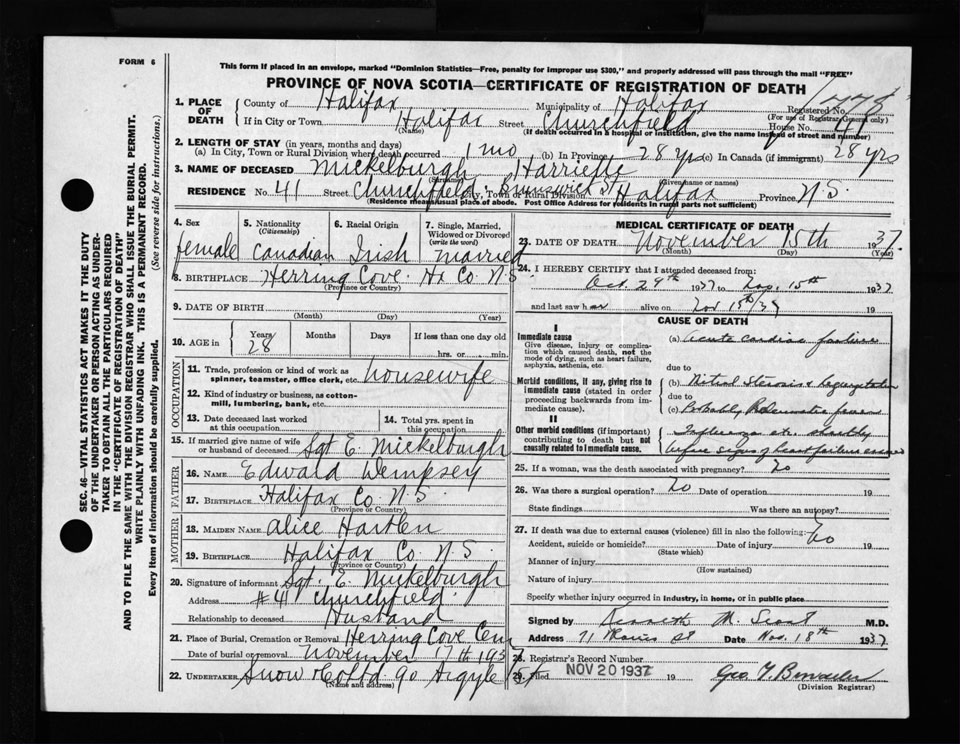 FORM 6
This form if placed in an envelope, marked "Dominion Statistics—Free, penalty for improper use $300," and properly addressed will pass through the mail "FREE"
PROVINCE OF NOVA SCOTIA—CERTIFICATE OF REGISTRATION OF DEATH
SEC. 46—VITAL STATISTICS ACT MAKES IT THE DUTY
OF THE UNDERTAKER OR PERSON ACTING AS UNDER-
TAKER TO OBTAIN ALL THE PARTICULARS REQUIRED
IN THE "CERTIFICATE OF REGISTRATION OF DEATH"
AND TO FILE THE SAME WITH THE DIVISION REGISTRAR WHO SHALL ISSUE THE BURIAL PERMIT.
WRITE PLAINLY WITH UNFADING INK. THIS IS A PERMANENT RECORD.
Every item of information should be carefully supplied. (See reverse side for instructions.)
1. PLACE OF DEATH
County of Halifax Municipality of Halifax Registered No.
(For use of Registrar General only)
If in City or Town Halifax Street Churchfield House No. 41
(Name) (If death occurred in a hospital or institution, give the name instead of street and number)
2. LENGTH OF STAY (in years, months and days)
(a) In City, Town or Rural Division where death occurred 1 mo (b) In Province 28 yrs (c) In Canada (if immigrant) 28 yrs
3. NAME OF DECEASED Mickelburgh Harriette
(Surname) (Given name or names)
RESIDENCE No. 41 Street Churchfield. Brunswick St Halifax Province N.S.
City, Town or Rural Division
(Residence means usual place of abode. Post Office Address for residents in rural parts not sufficient)
4. Sex female
5. Nationality (Citizenship) Canadian
6. Racial Origin Irish
7. Single, Married, Widowed or Divorced (write the word) Married
8. BIRTHPLACE Herring Cove. Hx Co. N.S
(Province or Country)
9. DATE OF BIRTH
(Month) (Day) (Year)
10. AGE in Years 28 Months Days If less than one day old
hrs. or min.
OCCUPATION
11. Trade, profession or kind of work as spinner, teamster, office clerk, etc. Housewife
12. Kind of industry or business, as cotton-mill, lumbering, bank, etc.
13. Date deceased last worked at this occupation
14. Total yrs. spent in this occupation
15. If married give name of wife or husband of deceased Sgt E. Mickelburgh
FATHER
16. NAME Edward Dempsey
17. BIRTHPLACE Halifax Co. N.S.
(Province or Country)
MOTHER
18. MAIDEN NAME Alice Hartlen
19. BIRTHPLACE Halifax Co. N.S.
(Province or Country)
20. Signature of informant Sgt. E. Mickelburgh
Address #41 Churchfield.
Relationship to deceased Husband
21. Place of Burial, Cremation or Removal Herring Cove Cem
Date of burial or removal November 17th 1937
22. UNDERTAKER Snow & Co Ltd 90 Argyle St
(Name and address)
MEDICAL CERTIFICATE OF DEATH
23. DATE OF DEATH November 15th 1937.
(Month) (Day) (Year)
24. I HEREBY CERTIFY that I attended deceased from:
Oct. 29th 1937 to Nov. 15th 1937
and last saw her alive on Nov 15th/37 19
CAUSE OF DEATH
I
Immediate cause
Give disease, injury or complication which caused death, not the mode of dying, such as heart failure, asphyxia, asthenia, etc.
(a) Acute cardiac failure
due to
Morbid conditions, if any, giving rise to immediate cause (stated in order proceeding backwards from immediate cause).
(b) Mitral Stenosis & regurgitation
due to
(c) Probably Rheumatic fever
II
Other morbid conditions (if important) contributing to death but not causally related to immediate cause.
Influenza etc. shortly
before signs of heart failure
25. If a woman, was the death associated with pregnancy? No
26. Was there a surgical operation? No Date of operation 19
State findings Was there an autopsy?
27. If death was due to external causes (violence) fill in also the following: No
Accident, suicide or homicide? Date of injury 19
(State which)
Manner of injury
(How sustained)
Nature of injury
Specify whether injury occurred in industry, in home, or in public place
Signed by Kenneth M. M.D.
Address 71 Morris St Date Nov. 18th 1937
28. Registrar's Record Number
29. Filed NOV 20 1937 19 Geo. T.
(Division Registrar)